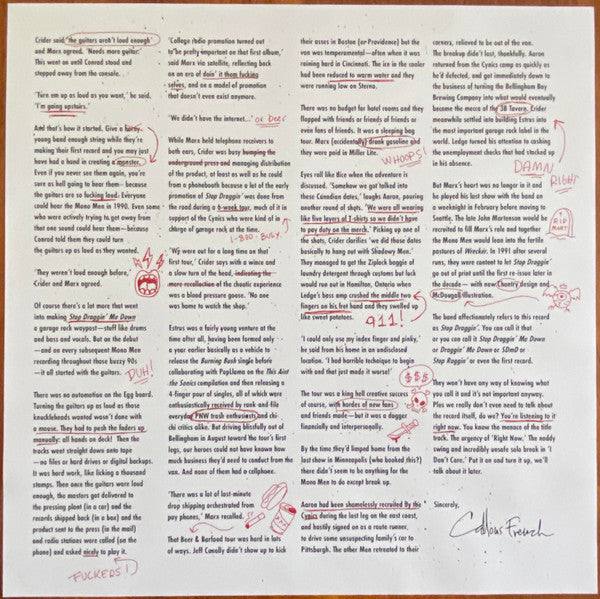 Crider said 'the guitars aren't loud enough'
and Marx agreed. 'Needs more guitar.'
This went on until Conrad stood and
stepped away from the console.
'Turn em up as loud as you want,' he said.
'I'm going upstairs.'
And that's how it started. Give a horny,
young band enough string while they're
making their first record and you may just
have had a hand in creating a monster.
Even if you never seen them again, you're
sure as hell going to hear them — because
the guitars are so fucking loud. Everyone
could hear the Mono Men in 1990. Even some
who were actively trying to get away from
that one sound could hear them — because
Conrad told them they could turn
the guitars up as loud as they wanted.
'They weren't loud enough before,'
Crider and Marx agreed.
Of course there's a lot more that went
into making Stop Draggin' Me Down
a garage rock waypost — stuff like drums
and bass and vocals. But on the debut
— and on every subsequent Mono Men
recording throughout those buzzy 90s
— it all started with the guitars.
DUH!
There was no automation on the Egg board.
Turning the guitars up as loud as those
knuckleheads wanted wasn't done with
a mouse. They had to push the faders up
manually: all hands on deck! Then the
tracks went straight down onto tape
— no files or hard drives or digital backups.
It was hard work, like licking a thousand
stamps. Then once the guitars were loud
enough, the masters got delivered to
the pressing plant (in a car) and the
records shipped back (in a box) and the
product sent to the press (in the mail)
and radio stations were called (on the
phone) and asked nicely to play it.
FUCKERS!
'College radio promotion turned out
to be pretty important on that first album,'
said Marx via satellite, reflecting back
on an era of doin' it them fucking
selves, and on a model of promotion
that doesn't even exist anymore.
'We didn't have the internet...'
or beer
While Marx held telephone receivers to
both ears, Crider was busy humping the
underground press and managing distribution
of the product, at least as well as he could
from a phonebooth because a lot of the early
promotion of Stop Draggin' was done from
the road during a 6-week tour, much of it in
support of the Cynics who were kind of in
charge of garage rock at the time.
1-800-BUSY
'We were out for a long time on that
first tour,' Crider says with a wince and
a slow turn of the head, indicating the
mere recollection of the chaotic experience
was a blood pressure goose. 'No one
was home to watch the shop.'
Estrus was a fairly young venture at the
time after all, having been formed only
a year earlier basically as a vehicle to
release the Burning Bush single before
collaborating with PopLlama on the This Aint
the Sonics compilation and then releasing a
4-finger pour of singles, all of which were
enthusiastically received by rank-and-file
everyday PNW trash enthusiasts and chi-
chi critics alike. But driving blissfully out of
Bellingham in August toward the tour's first
legs, our heroes could not have known how
much business they'd need to conduct from the
van. And none of them had a cellphone.
'There was a lot of last-minute
drop shipping orchestrated from
pay phones,' Marx recalled.
That Beer & Barfood tour was hard in lots
of ways. Jeff Conolly didn't show up to kick
their asses in Boston (or Providence) but the
van was temperamental — often when it was
raining hard in Cincinnati. The ice in the cooler
had been reduced to warm water and they
were running low on Sterno.
There was no budget for hotel rooms and they
flopped with friends or friends of friends or
even fans of friends. It was a sleeping bag
tour. Marx (accidentally) drank gasoline and
they were paid in Miller Lite.
WHOOPS!
Eyes roll like Bice when the adventure is
discussed. 'Somehow we got talked into
these Canadian dates,' laughs Aaron, pouring
another round of shqts. 'We were all wearing
like five layers of T-shirts so we didn't have
to pay duty on the merch.' Picking up one
of the shots, Crider clarifies 'we did those dates
basically to hang out with Shadowy Men.'
They managed to get the Ziplock baggie of
laundry detergent through customs but luck
would run out in Hamilton, Ontario when
Ledge's bass amp crushed the middle two
fingers on his fret hand and they swelled up
like sweet potatoes.
911!
'I could only use my index finger and pinky,'
he said from his home in an undisclosed
location. 'I had horrible technique to begin
with and that just made it worse!'
$$$
The tour was a king hell creative success
of course, with hordes of new fans
and friends made — but it was a dagger
financially and interpersonally.
By the time they'd limped home from the
last show in Minneapolis (who booked this?)
there didn't seem to be anything for the
Mono Men to do except break up.
Aaron had been shamelessly recruited By the
Cynics during the last leg on the east coast,
and hastily signed on as a route runner,
to drive some unsuspecting family's car to
Pittsburgh. The other Mon retreated to their
corners, relieved to be out of the van.
The breakup didn't last, thankfully. Aaron
returned from the Cynics camp as quickly as
he'd defected, and got immediately down to
the business of turning the Bellingham Bay
Brewing Company into what would eventually
become the mecca of the 3B Tavern. Crider
meanwhile settled into building Estrus into
the most important garage rock label in the
world. Ledge turned his attention to cashing
the unemployment checks that had stacked up
in his absence.
DAMN
RIGHT
But Marx's heart was no longer in it and
he played his last show with the band on
a weeknight in February before moving to
Seattle. The late John Mortensen would be
recruited to fill Marx's role and together
the Mono Men would lean into the fertile
pastures of Wrecker. In 1991 after several
runs, they were content to let Stop Draggin'
go out of print until the first re-issue later in
the decade — with new Chantry design and
McDougall illustration.
RIP
MORT
The band affectionately refers to this record
as Stop Draggin'. You can call it that
or you can call it Stop Draggin' Me Down
or Draggin' Me Down or SDmD or
Stop Raggin' or even the first record.
They won't have any way of knowing what
you call it and it's not important anyway.
Plus we really don't even need to talk about
the record itself, do we? You're listening to it
right now. You know the menace of the title
track. The urgency of 'Right Now.' The noddy
swing and incredibly unsafe solo break in 'I
Don't Care.' Put it on and turn it up, we'll
talk about it later.
Sincerely,
French